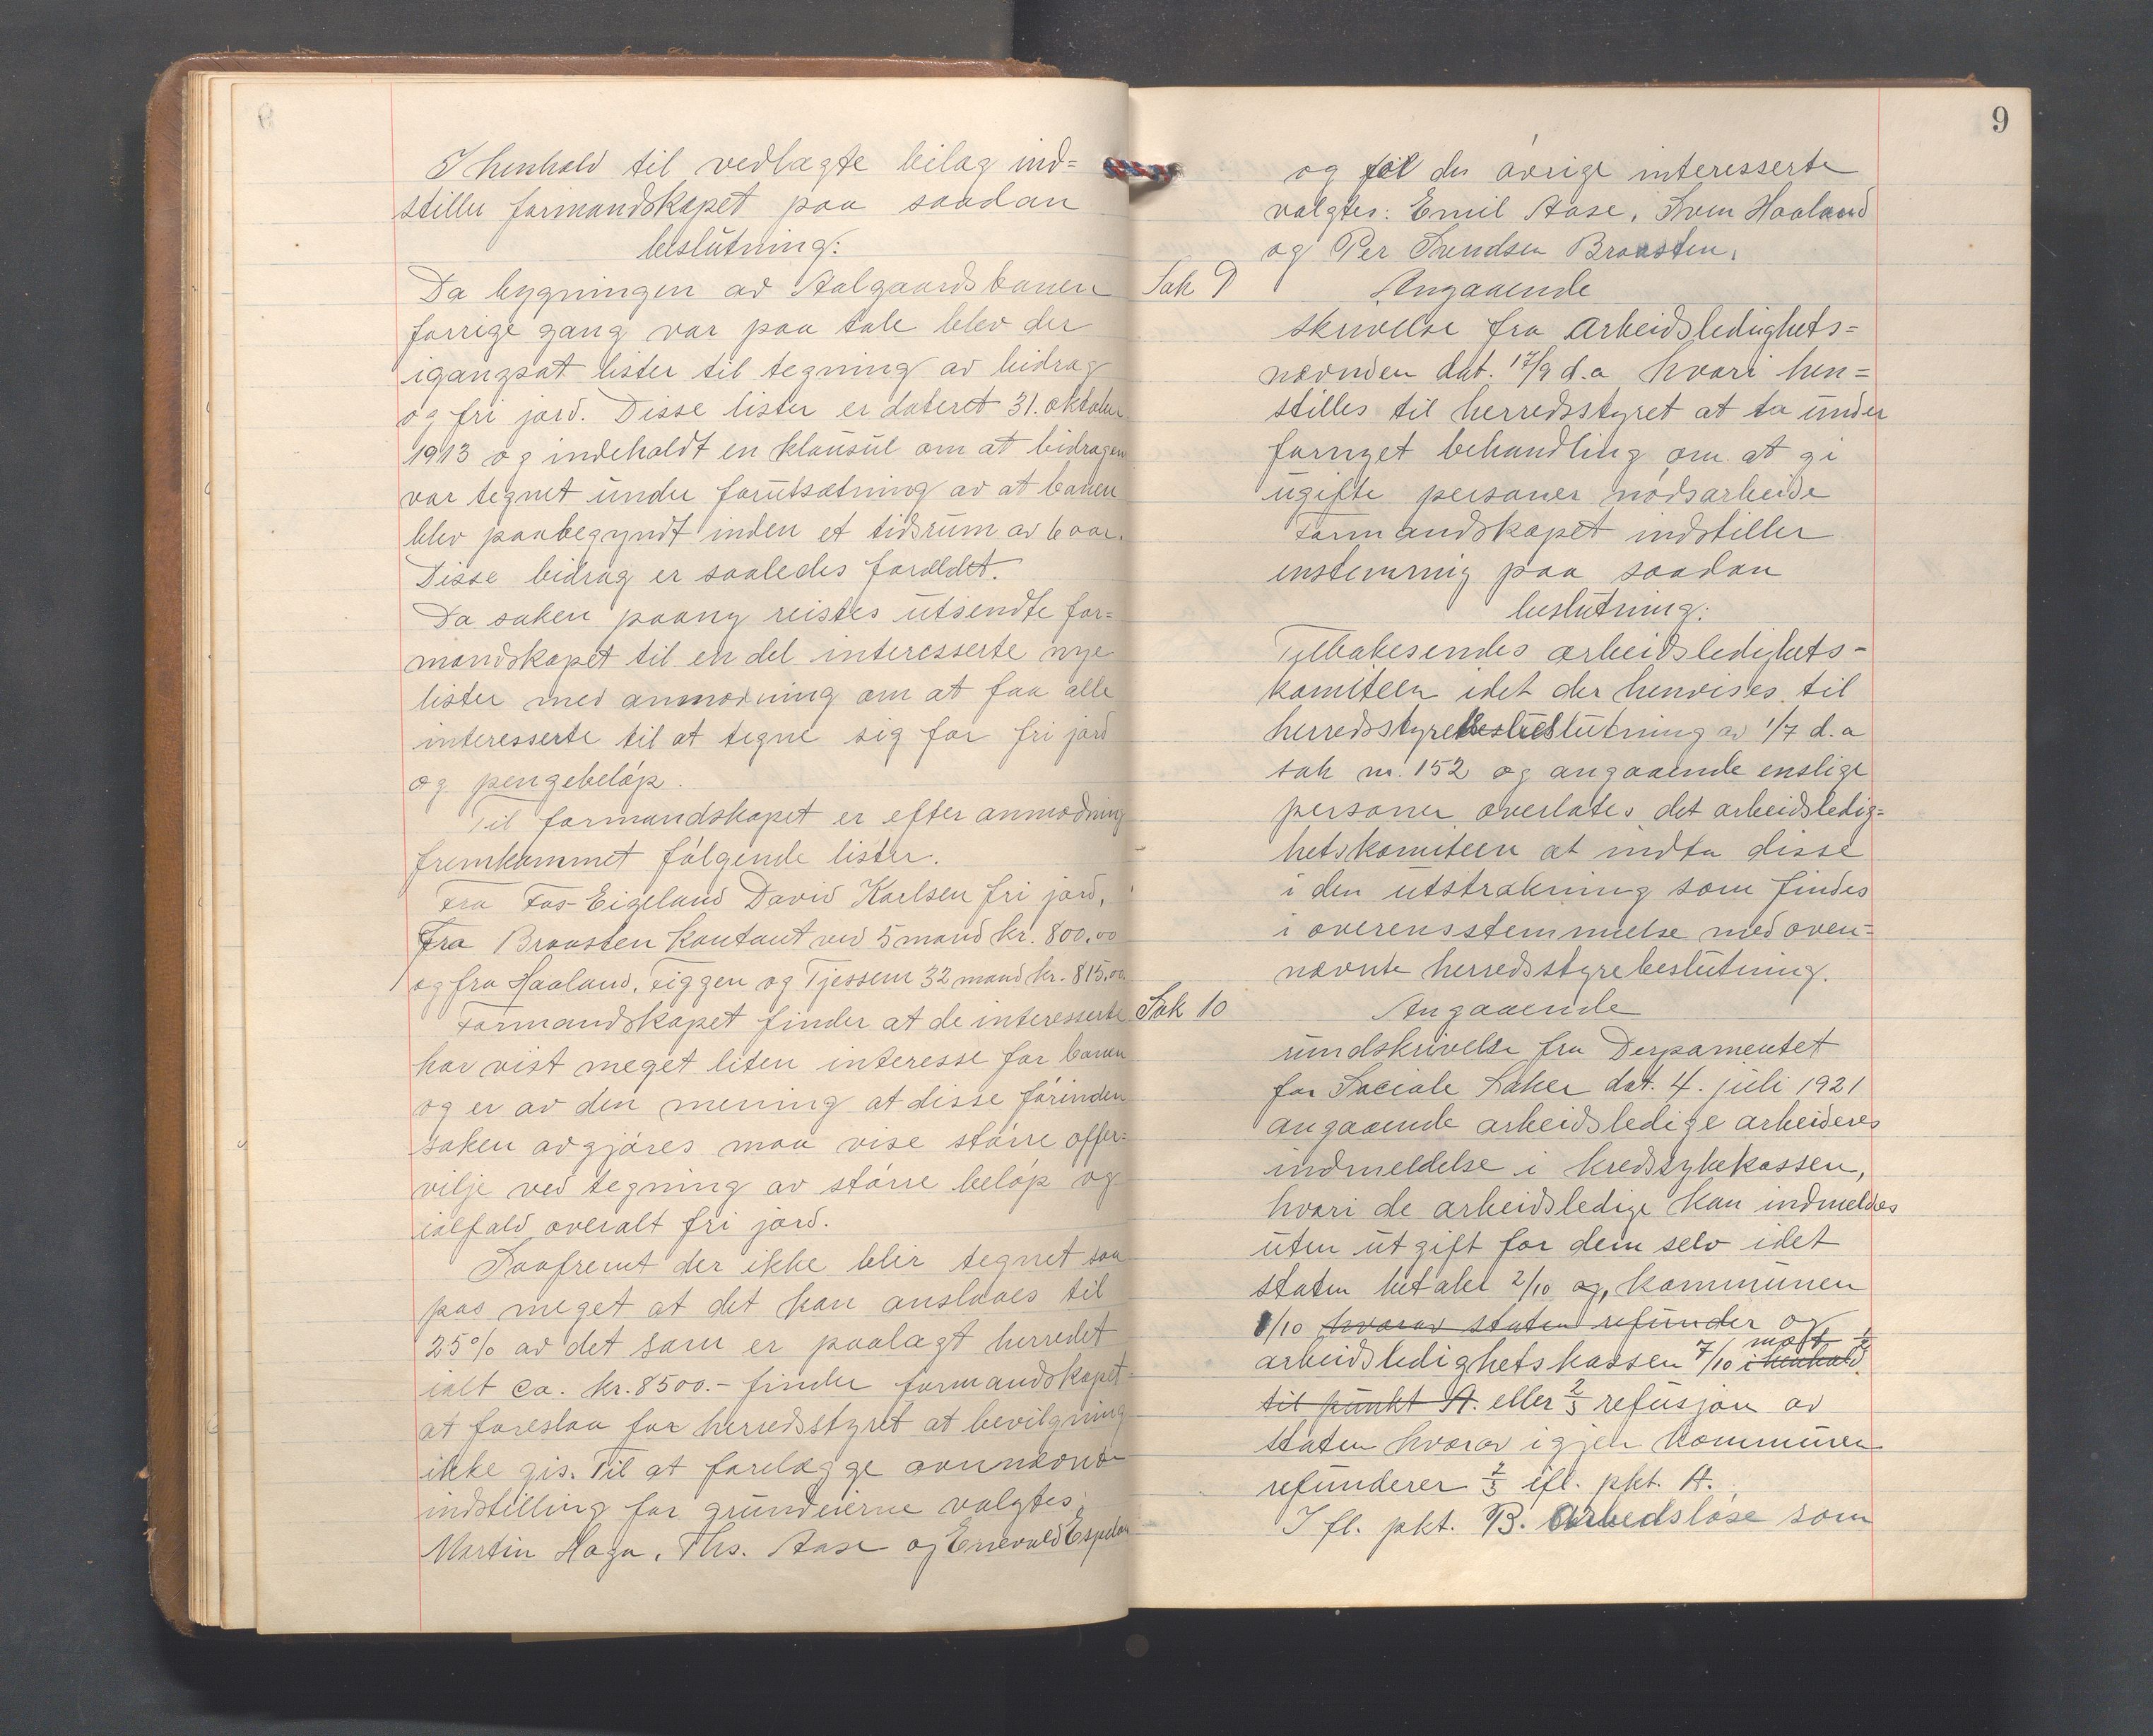 I henhold til vedlagte bilag ind=
stiller formandskapet paa saadan
beslutning:
Da bygningen av Aalgaardsbanen
forrige gang var paa tale blev der
igangsat lister til tegning av bidrag
og fri jord. Disse lister er dateret 31. oktober
1913 og indeholdt en klausul om at bidragen
var tegnet under forutsætning av at banen
blev paabegyndt inden et tidsrum av 6 aar.
Disse bidrag er saaledes forældet.
Da saken paany reistes utsendte for=
mandskapet til en del interesserte nye
lister med anmodning om at faa alle
interesserte til at tegne sig for fri jord
og pengebeløp.
Til formandskapet er efter anmodning
fremkommet følgende lister.
Fra Fos-Eigeland David Karlsen fri jord,
Fra Braasten Kontant ved 5 mand kr. 800.00
og fra Haaland, Figgen og Tjessem 32 mand kr. 815.00
Formandskapet finder at de interesserte
har vist meget liten interesse for banen
og er av den mening at disse førinden
saken avgjøres maa vise større offer=
vilje ved tegning av større beløp og
ialfald overalt fri jord.
Saafremt der ikke blir tegnet saa
pas meget at det kan anslaaes til
25% av det som er paalagt herredet
ialt ca. kr. 8500.- finder formandskapet
at foreslaa for herredsstyret at bevilgning
ikke gis. Til at forelægge ovennævnte
indstilling for grundeierne valgtes:
Martin Haga, Ths. Aase og Enevald Espeland
9
og for de øvrige interesserte
valgtes: Emil Aase, Sven Haaland
og Per Svendsen Braasten.
Sak 9 Angaaende
skrivelse fra arbeidsledighets=
nævnden dat. 17/9 d.a hvori hen=
stilles til herredsstyret at ta under
fornyet behandling om at gi
ugifte personer nødsarbeide
Formandskapet indstiller
enstemmig paa saadan
beslutning:
Tilbakesendes arbeidsledighets-
komiteen idet der henvises til
herredsstyrebeslutning av 1/7 d.a
sak nr. 152 og angaaende enslige
personer overlates det arbeidsledig=
hetskomiteen at indta disse
i den utstrækning som findes
i overensstemmelse med oven=
nævnte herredsstyrebeslutning.
Sak 10 Angaaende
rundskrivelse fra Derpamentet
for Sociale Saker dat. 4. juli 1921
angaaende arbeidsledige arbeideres
indmeldelse i kredssykekassen,
hvori de arbeidsledige kan indmeldes
uten utgift for dem selv idet
staten betaler 2/10 og, kommunen
1/10 hvorav staten refunder og
arbeidsledighetskassen 7/10 i henhold mot ½
til punkt A. eller 2/3 refusjon av
staten hvorav igjen kommunen
refunderer 2/3 ifl. pkt. A.
I fl. pkt. B. Arbeidsløse som